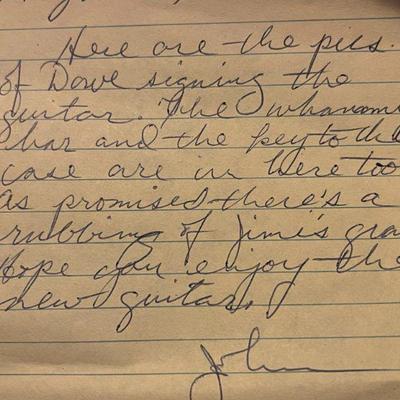 Here are the pics.
of Dave signing the
guitar. The whammi
bar and the key to the
case are in here too
As promised there's a
rubbing of Jimi's gra
Hope you enjoy the
new guitar.
John